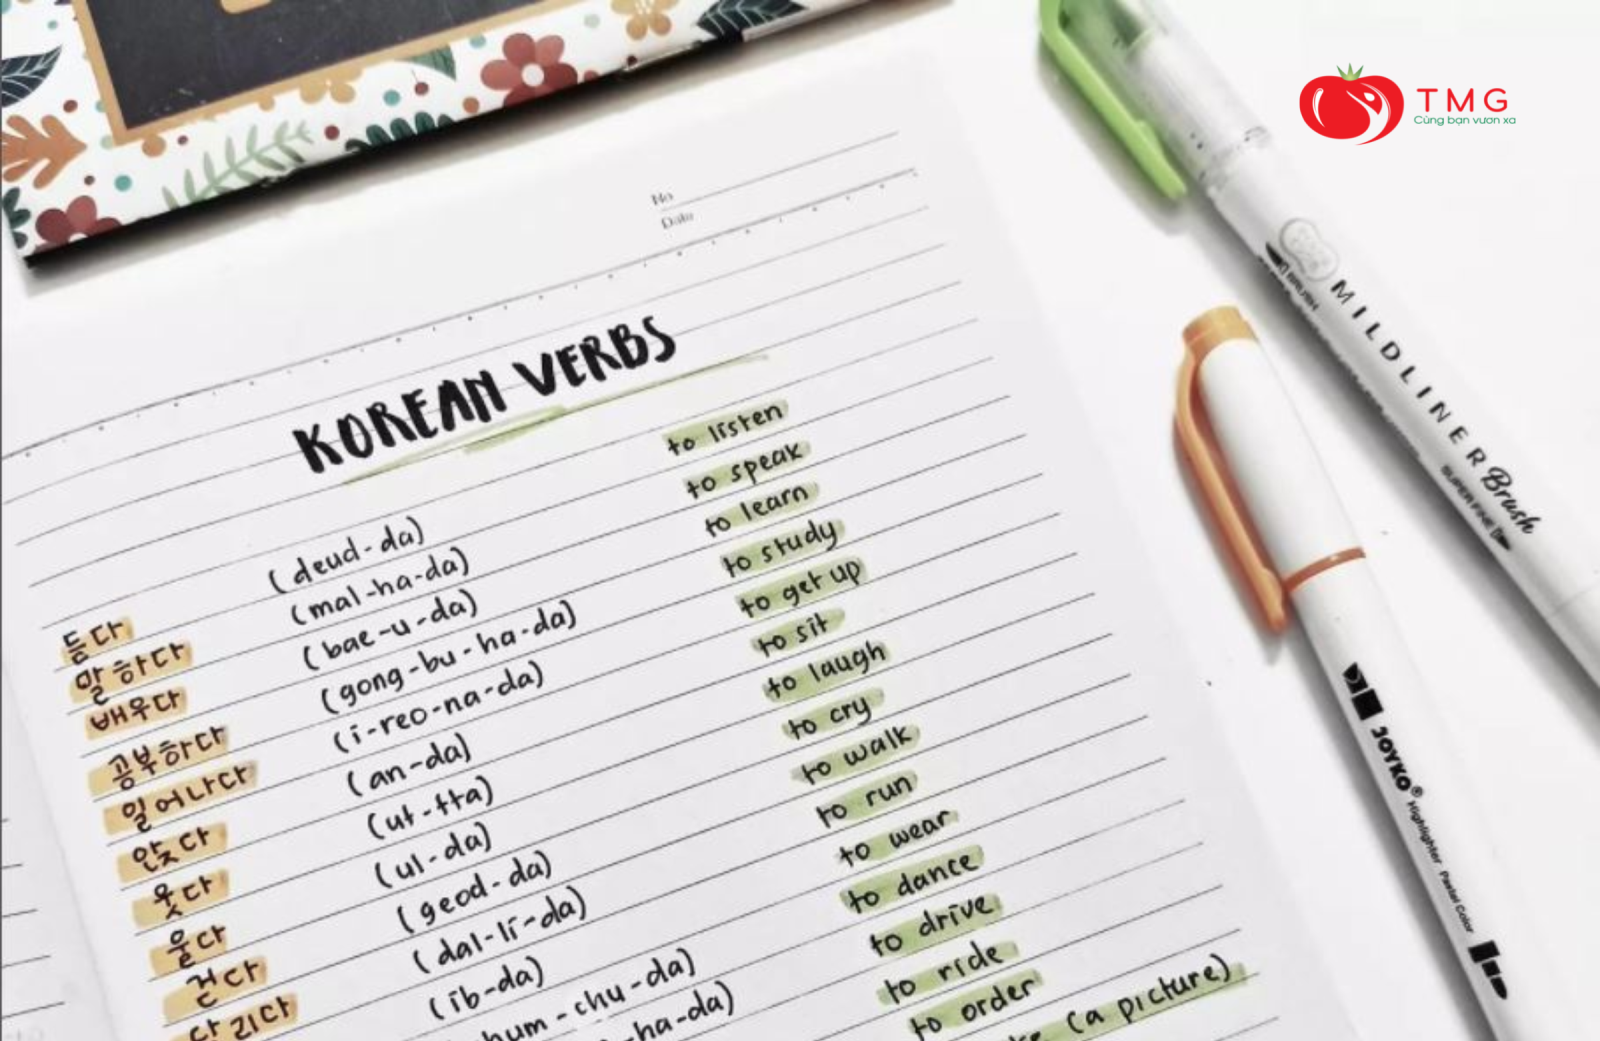 TMG
Cùng bạn vươn xa
No
Date
KOREAN VERBS
듣다 (deud-da) to listen
말하다 (mal-ha-da) to speak
배우다 (bae-u-da) to learn
공부하다 (gong-bu-ha-da) to study
일어나다 (i-reo-na-da) to get up
앉다 (an-da) to sit
웃다 (ut-tta) to laugh
울다 (ul-da) to cry
걷다 (geod-da) to walk
달리다 (dal-li-da) to run
(ib-da) to wear
chum-chu-da) to dance
-ha-da) to drive
to ride
to order
(a picture)
MILDLINER Brush
BRUSH
SUPER FINE
JOYKO®
Highlighter Pastel Color